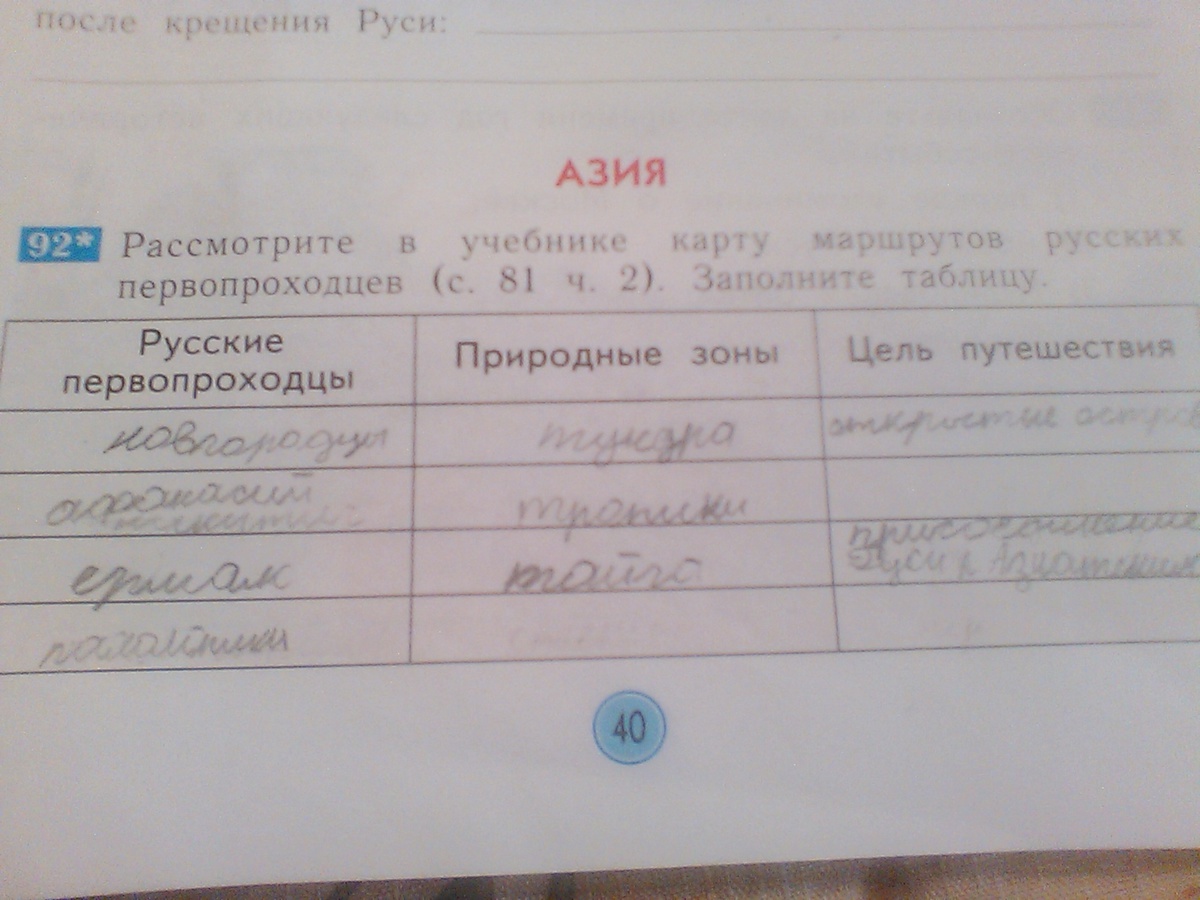 после крещения Руси:
АЗИЯ
92* Рассмотрите в учебнике карту маршрутов русских
первопроходцев (с. 81 ч. 2). Заполните таблицу.
Русские
первопроходцы
Природные зоны
Цель путешествия
новгородцы
тундра
открытие остров
афанасий
никитин
тропики
ермак
тайга
присоединение
Руси к Азиатским
паломники
40